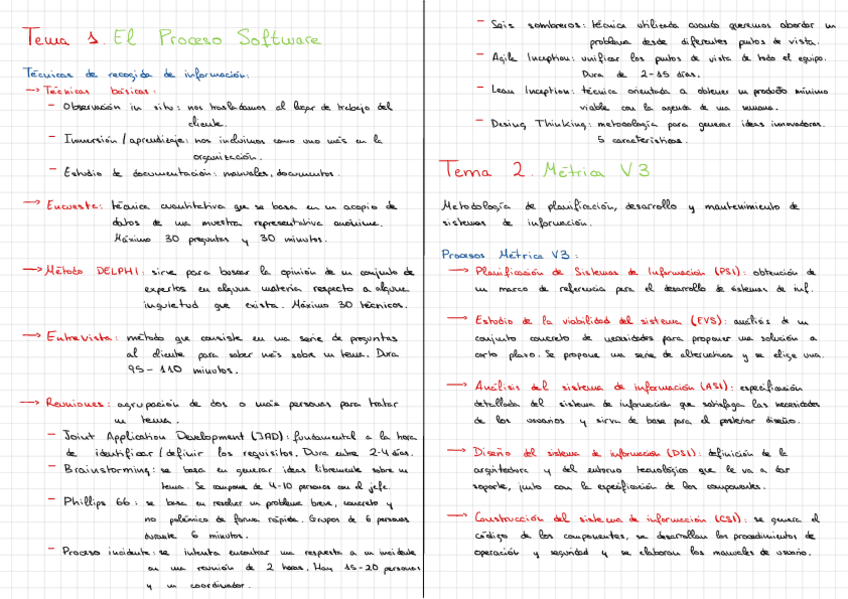 Tema 1. El Proceso Software
Técnicas de recogida de información:
→ Técnicas básicas:
- Observación in situ: nos trasladamos al lugar de trabajo del
cliente.
- Inmersión / aprendizaje: nos incluimos como uno más en la
organización.
- Estudio de documentación: manuales, documentos.
→ Encuesta: técnica cuantitativa que se basa en un acopio de
datos de una muestra representativa anónima.
Máximo 30 preguntas y 30 minutos.
→ Método DELPHI: sirve para buscar la opinión de un conjunto de
expertos en alguna materia respecto a alguna
inquietud que exista. Máximo 30 técnicos.
→ Entrevista: método que consiste en una serie de preguntas
al cliente para saber más sobre un tema. Dura
95-110 minutos.
→ Reuniones: agrupación de dos o más personas para tratar
un tema.
- Joint Application Development (JAD): fundamental a la hora
de identificar / definir los requisitos. Dura entre 2-4 días.
- Brainstorming: se basa en generar ideas libremente sobre un
tema. Se compone de 4-10 personas con el jefe.
- Phillips 66: se basa en resolver un problema breve, concreto y
no polémico de forma rápida. Grupos de 6 personas
durante 6 minutos.
- Proceso incidente: se intenta encontrar una respuesta a un incidente
en una reunión de 2 horas. Hay 15-20 personas
y un coordinador.
- Seis sombreros: técnica utilizada cuando queremos abordar un
problema desde diferentes puntos de vista.
- Agile Inception: unificar los puntos de vista de todo el equipo.
Dura de 2-15 días.
- Lean Inception: técnica orientada a obtener un producto mínimo
viable con la agenda de una semana.
- Desing Thinking: metodología para generar ideas innovadoras.
5 características.
Tema 2. Métrica V3
Metodología de planificación, desarrollo y mantenimiento de
sistemas de información.
Procesos Métrica V3:
→ Planificación de Sistemas de Información (PSI): obtención de
un marco de referencia para el desarrollo de sistemas de inf.
→ Estudio de la viabilidad del sistema (EVS): análisis de un
conjunto concreto de necesidades para proponer una solución a
corto plazo. Se propone una serie de alternativas y se elige una.
→ Análisis del sistema de información (ASI): especificación
detallada del sistema de información que satisfaga las necesidades
de los usuarios y sirva de base para el posterior diseño.
→ Diseño del sistema de información (DSI): definición de la
arquitectura y del entorno tecnológico que le va a dar
soporte, junto con la especificación de los componentes.
→ Construcción del sistema de información (CSI): se genera el
código de los componentes, se desarrollan los procedimientos de
operación y seguridad y se elaboran los manuales de usuario.